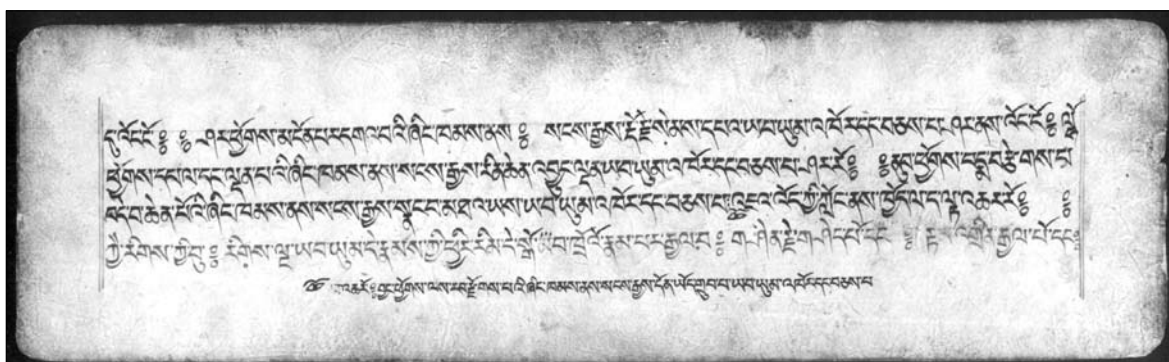 དུ་འོང་ངོ༔ ༔ ཤར་ཕྱོགས་མངོན་པར་དགའ་བའི་ཞིང་ཁམས་ནས༔ སངས་རྒྱས་རྡོ་རྗེ་སེམས་དཔའ་ཡབ་ཡུམ་འཁོར་དང་བཅས་པ་ཤར་ནས་འོང་ངོ༔ ལྷོ
ཕྱོགས་དཔལ་དང་ལྡན་པའི་ཞིང་ཁམས་ནས་སངས་རྒྱས་རིན་ཆེན་འབྱུང་ལྡན་ཡབ་ཡུམ་འཁོར་དང་བཅས་པ་ཤར་རོ༔ ༔ནུབ་ཕྱོགས་པདྨ་བརྩེགས་པ
བདེ་བ་ཆེན་པོའི་ཞིང་ཁམས་ནས་སངས་རྒྱས་སྣང་བ་མཐའ་ཡས་ཡབ་ཡུམ་འཁོར་དང་བཅས་པ་འཇའ་འོད་ཀྱི་ཀློང་ནས་ཁྱོད་ལ་ད་ལྟ་འཆར་རོ༔ ༔
ཀྱཻ་རིགས་ཀྱི་བུ༔ རིགས་ལྔ་ཡབ་ཡུམ་དེ་རྣམས་ཀྱི་ཕྱི་རིམ་དེ་སྒོ་བ་ཁྲོ་བོ་རྣམ་པར་རྒྱལ་བ༔ གཤིན་རྗེ་གཤེད་པོ་དང༔ རྟ་མགྲིན་རྒྱལ་པོ་དང༔
འཆར་རོ༔བྱང་ཕྱོགས་ལས་རབ་རྫོགས་པའི་ཞིང་ཁམས་ནས་སངས་རྒྱས་དོན་ཡོད་གྲུབ་པ་ཡབ་ཡུམ་འཁོར་དང་བཅས་པ